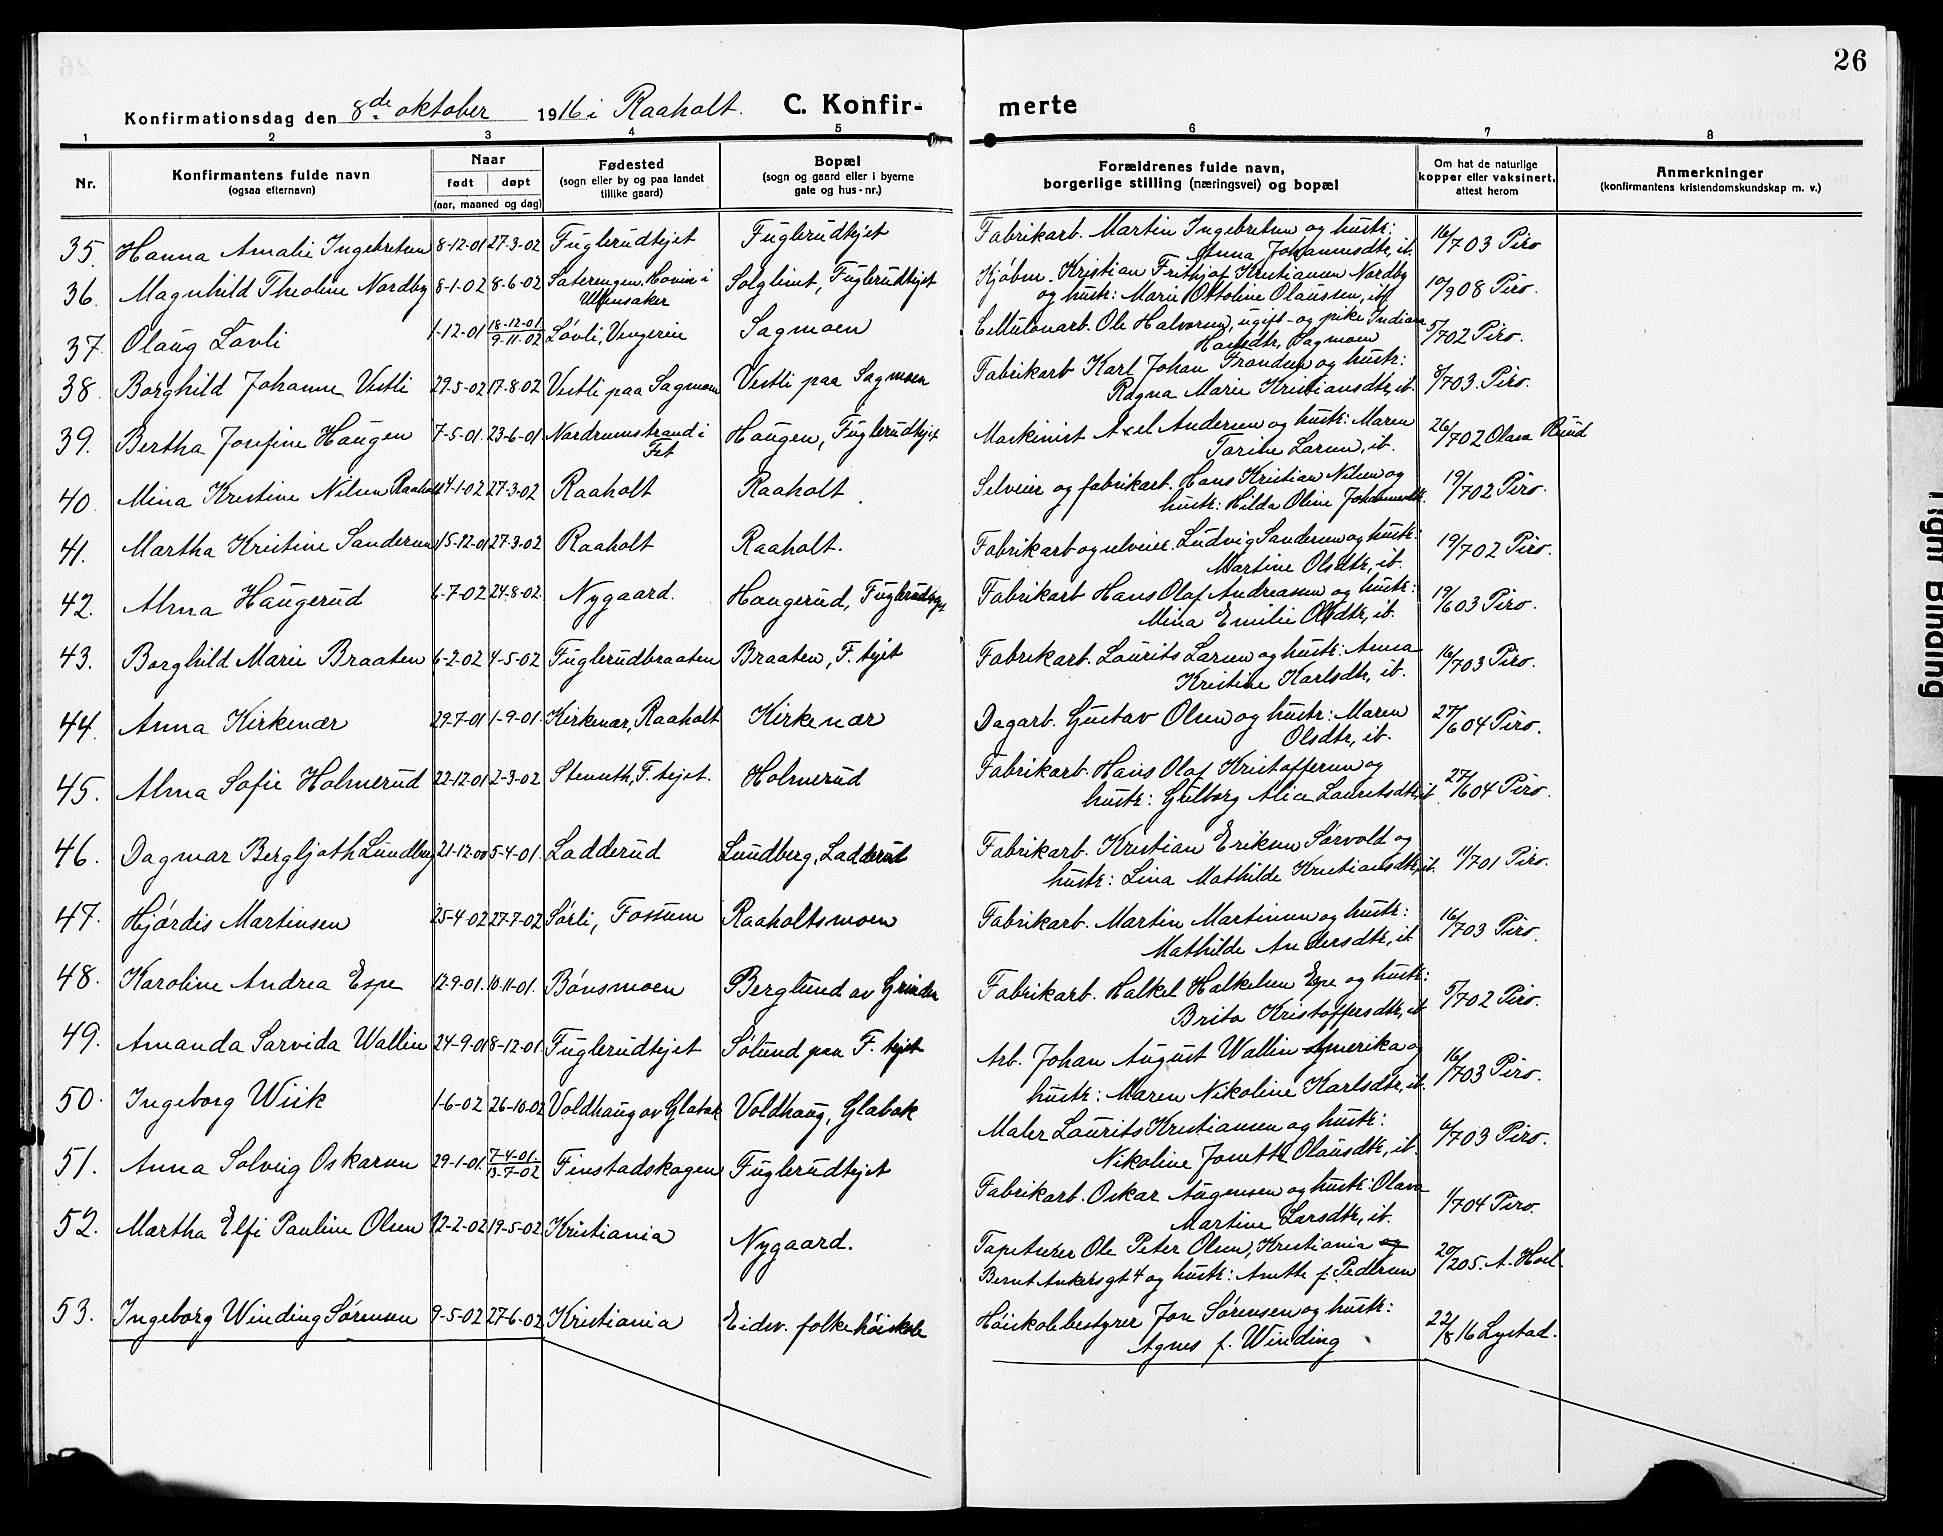 26
Konfirmationsdag den 8de oktober 1916 i Raaholt. C. Konfirmerte
1 2 3 4 5 6 7 8
Nr. | Konfirmantens fulde navn (ogsaa efternavn) | Naar født døpt (aar, maaned og dag) | Fødested (sogn eller by og paa landet tillike gaard) | Bopæl (sogn og gaard eller i byerne gate og hus-nr.) | Forældrenes fulde navn, borgerlige stilling (næringsvei) og bopæl | Om hat de naturlige kopper eller vaksinert, attest herom | Anmerkninger (konfirmantens kristendomskundskap m. v.)
35. Hanna Amalie Ingebretsen 8-12-01 27-3-02 Fuglerudtejet Fuglerudtejet Fabrikarb. Martin Ingebretsen og hustr: Anna Johannesdtr, ib. 16/7 03 Piro
36. Magnhild Theoline Nordby 8-1-02 8-6-02 Saterengen, Hovin i Ullensaker Solglimt, Fuglerudtejet Kjøbm. Kristian Frithjof Kristiansen Nordby og hustr: Marie Ottoline Olaussen, ib. 10/9 08 Piro.
37. Olaug Løvli 1-12-01 18-12-01 9-11-02 Løvli, Vengerin Sagmoen Cellulonarb. Ole Halvorsen, ugift og pike Indiana Hansdtr, Sagmoen 5/7 02 Piro.
38. Borghild Johanne Vestli 29-5-02 17-8-02 Vestli paa Sagmoen Vestli paa Sagmoen Fabrikarb Karl Johan Frandsen og hustr: Ragna Marie Kristiansdtr, ib. 8/7 03. Piro.
39. Bertha Josefine Haugen 7-5-01. 23-6-01 Nordrumstrand i Fet Haugen, Fuglerudtejet Maskinist Axel Andersen og hustr: Maren Larsen, ib. 26/7 02 Olaea Ruud
40. Mina Kristine Nilsen Raaholt 4-1-02 27-3-02 Raaholt Raaholt. Selveier og fabrikarb. Hans Kristian Nilsen og hustr: Hilda Oline Johannesdtr. 19/7 02 Piro.
41. Martha Kristine Sandersen 15-12-01 27-3-02 Raaholt Raaholt. Fabrikarb og selveier. Ludvig Sandersen og hustr: Martine Olsdtr, ib. 19/7 02 Piro.
42. Alma Haugerud 6-7-02 24-8-02. Nygaard. Haugerud, Fuglerudtejet Fabrikarb Hans Olaf Andreassen og hustr: Mina Emilie Olsdtr, ib. 19/6 03 Piro.
43. Borghild Marie Braaten 6-2-02 4-5-02 Fuglerudbraaten Braaten, F. tejet Fabrikarb. Laurits Larsen og hustr: Anna Kristine Karlsdtr, ib. 16/7 03 Piro.
44. Anna Kirkenær 29-7-01 1-9-01. Kirkenær, Raaholt Kirkenær Dagarb. Gustav Olsen og hustr: Maren Olsdtr, ib. 27/6 04 Piro.
45. Alma Sofie Holmerud 22-12-01 2-3-02 Stensith, F. tejet. Holmerud Fabrikarb. Hans Olaf Kristoffersen og hustr: Gulborg Alice Lauritsdtr, ib 27/6 04 Piro.
46. Dagmar Bergljoth Lundberg 21-12-00 5-4-01. Ladderud Lundberg, Ladderud Fabrikarb. Kristian Eriksen Sørvold og hustr: Lina Mathilde Kristiansdtr, ib. 11/7 01 Piro.
47. Hjørdis Martinsen 25-4-02 27-7-02 Sørli, Fossum Raaholtsmoen Fabrikarb. Martin Martinsen og hustr: Mathilde Andersdtr, ib 16/7 03 Piro.
48. Karoline Andrea Espe 12-9-01. 10-11-01. Bønsmoen Berglund av Grinder Fabrikarb. Halkel Halkelsen Espe og hustr: Brita Kristoffersdtr, ib 5/7 02 Piro.
49. Amanda Sarvida Wallin 24-9-01 8-12-01 Fuglerudtejet Sølund paa F. tejet Arb. Johan August Wallin Amerika og hustr: Maren Nikoline Karlsdtr, ib. 16/7 03 Piro.
50. Ingeborg Wiik 1-6-02 26-10-02 Voldhaug av Glabak Voldhaug, Glabak Maler Laurits Kristiansen og hustr: Nikoline Jonette Olausdtr, ib. 6/7 03 Piro.
51. Anna Solveig Oskarsen 29-1-01. 7-4-01. 13-7-02 Finstadskogen Fuglerudtejet Fabrikarb. Oskar Augensen og hustr: Olava Martine Larsdtr, ib. 1/7 04 Piro.
52. Martha Elfi Pauline Olsen 12-2-02 19-5-02 Kristiania Nygaard. Tapetserer Ole Peter Olsen, Kristiania og Bernt Ankersgt 4 og hustr: Anette f. Pedersen 20/2 05. A. Hoel.
53. Ingeborg Winding Sørensen 9-5-02 27-6-02 Kristiania Eidsv. folkehøiskole Høiskolebestyrer Jon Sørensen og hustr: Agnes f. Winding 22/8 16 Lystad.
Tight Binding